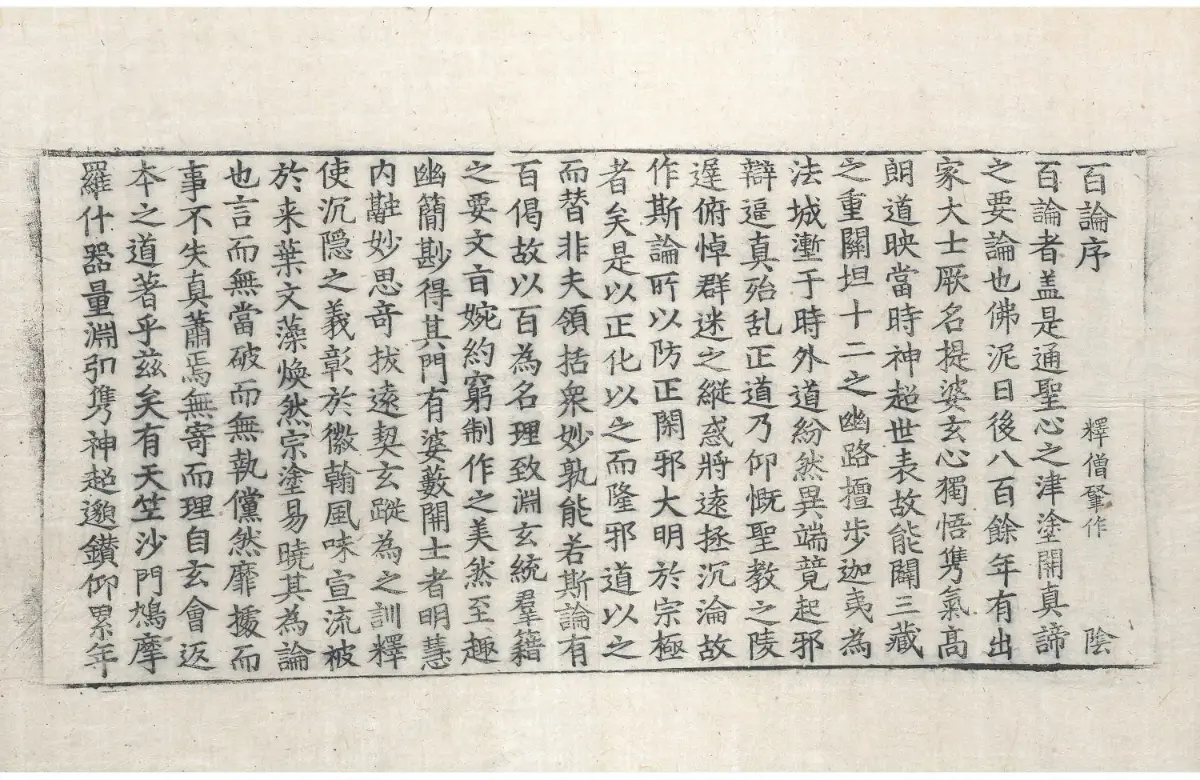 百論序 釋僧肇作 陰
百論者盖是通聖心之津塗開真諦
之要論也佛泥曰後八百餘年有出
家大士厥名提婆玄心獨悟雋氣髙
朗道映當時神超世表故能闢三藏
之重關坦十二之幽路擅步迦夷為
法城壍于時外道紛然異端競起邪
辯逼真殆乱正道乃仰慨聖教之陵
遟俯悼群迷之縱惑將遠拯沉淪故
作斯論所以防正閑邪大明於宗極
者矣是以正化以之而隆邪道以之
而替非夫領括衆妙孰能若斯論有
百偈故以百為名理致淵玄統羣籍
之要文言婉約窮制作之美然至趣
幽簡尠得其門有婆藪開士者明慧
内融妙思奇拔遠契玄蹤為之訓釋
使沉隱之義彰於徽翰風味宣流被
於来葉文藻煥然宗塗易曉其為論
也言而無當破而無執儻然靡據而
事不失真蕭焉無寄而理自玄會返
本之道著乎兹矣有天竺沙門鳩摩
羅什器量淵弘雋神超邈鑚仰累年